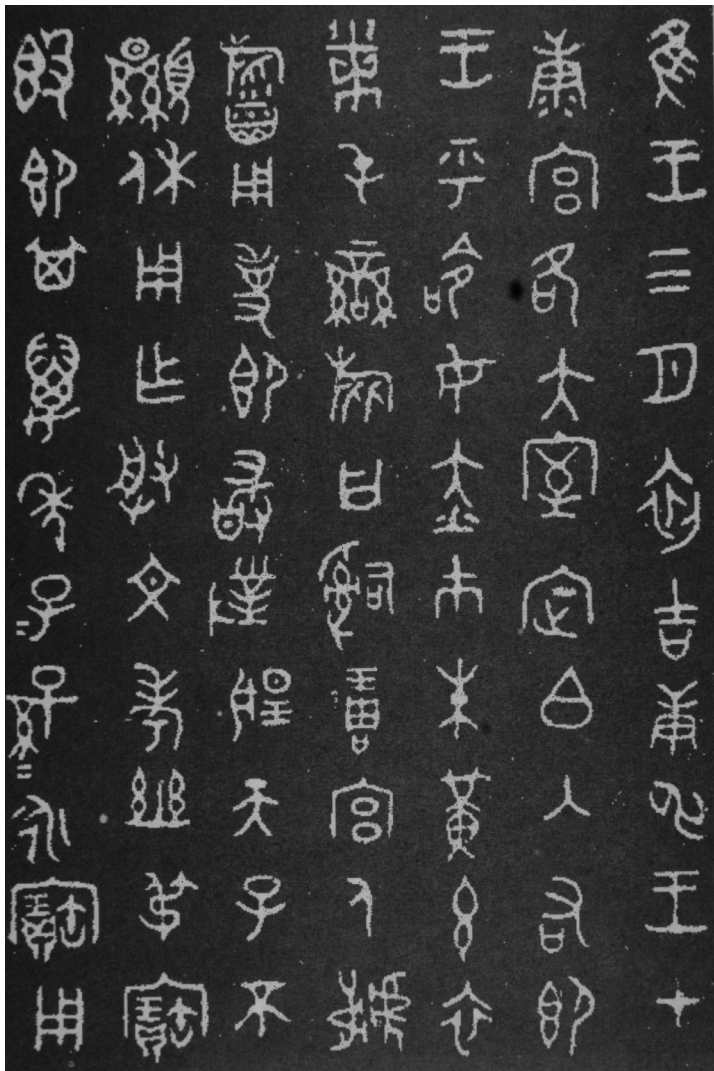 隹王三月初吉庚申王才
康宮各大室定白入右即
王乎命女赤巿朱黃玄衣
黹屯䜌旂曰𤔲琱宮人虢
用事即敢對揚天子不
顯休用乍朕文考幽弔寶
𣪘即其萬年子=孫=永寶用